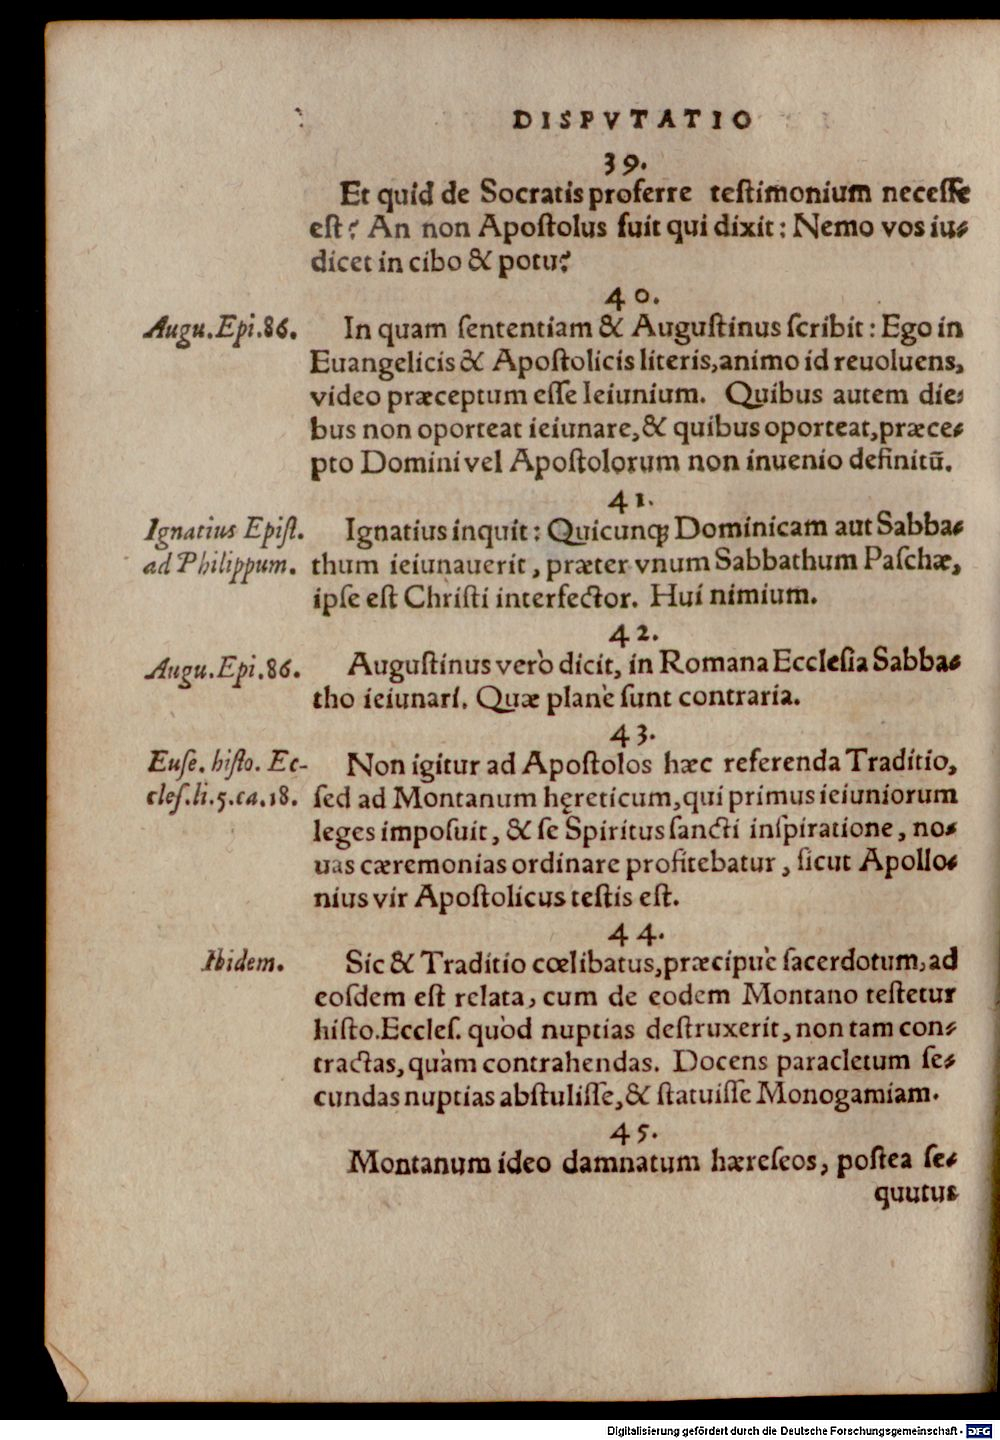 DISPVTATIO
39.
Et quid de Socratis proferre testimonium necesse
est? An non Apostolus fuit qui dixit: Nemo vos iu-
dicet in cibo & potu?
40.
Augu. Epi. 86.
In quam sententiam & Augustinus scribit: Ego in
Euangelicis & Apostolicis literis, animo id reuoluens,
video præceptum esse Ieiunium. Quibus autem die-
bus non oporteat ieiunare, & quibus oporteat, præce-
pto Domini vel Apostolorum non inuenio definitū.
41.
Ignatius Epist.
ad Philippum.
Ignatius inquit: Quicunqꝫ Dominicam aut Sabba-
thum ieiunauerit, præter vnum Sabbathum Paschæ,
ipse est Christi interfector. Hui nimium.
42.
Augu. Epi. 86.
Augustinus verò dicit, in Romana Ecclesia Sabba-
tho ieiunari. Quæ planè sunt contraria.
43.
Euse. histo. Ec-
cles. li. 5. ca. 18.
Non igitur ad Apostolos hæc referenda Traditio,
sed ad Montanum hęreticum, qui primus ieiuniorum
leges imposuit, & se Spiritus sancti inspiratione, no-
uas cæremonias ordinare profitebatur, sicut Apollo-
nius vir Apostolicus testis est.
44.
Ibidem.
Sic & Traditio cœlibatus, præcipuè sacerdotum, ad
eosdem est relata, cum de eodem Montano testetur
histo. Eccles. quòd nuptias destruxerit, non tam con-
tractas, quàm contrahendas. Docens paracletum se-
cundas nuptias abstulisse, & statuisse Monogamiam.
45.
Montanum ideo damnatum hæreseos, postea se-
quutus
Digitalisierung gefördert durch die Deutsche Forschungsgemeinschaft - DFG